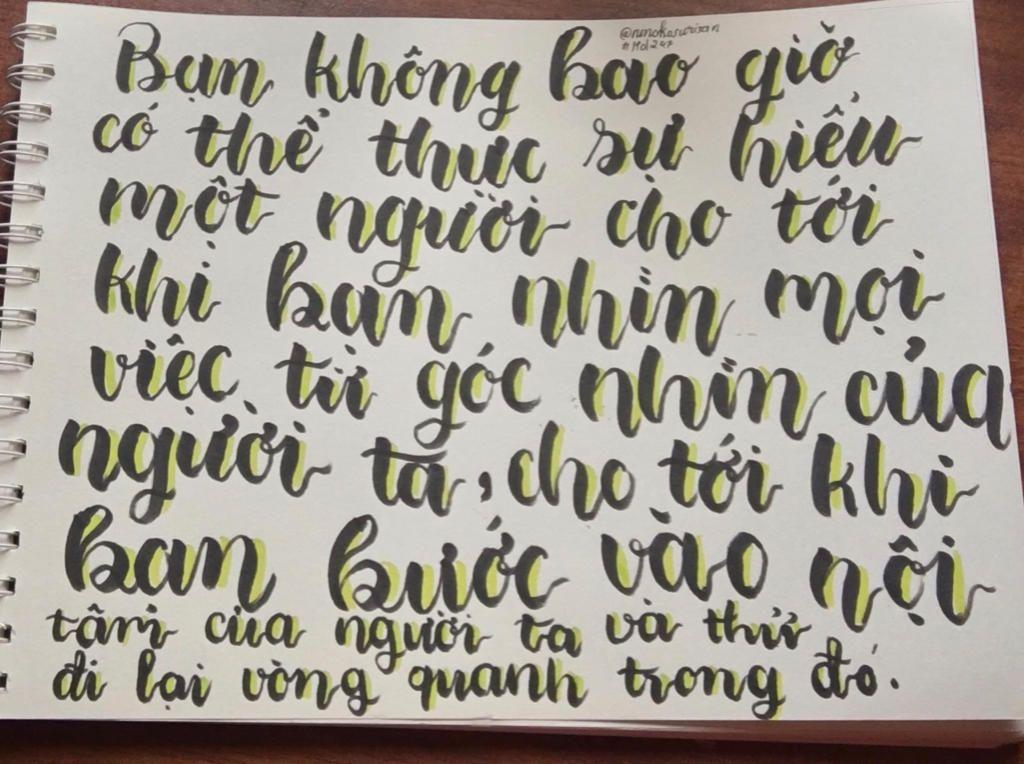 @nmokasurisan
#Hd247
Bạn không bao giờ
có thể thực sự hiểu
một người cho tới
khi bạn nhìn mọi
việc từ góc nhìn của
người ta, cho tới khi
bạn bước vào nội
tâm của người ta và thử
đi lại vòng quanh trong đó.